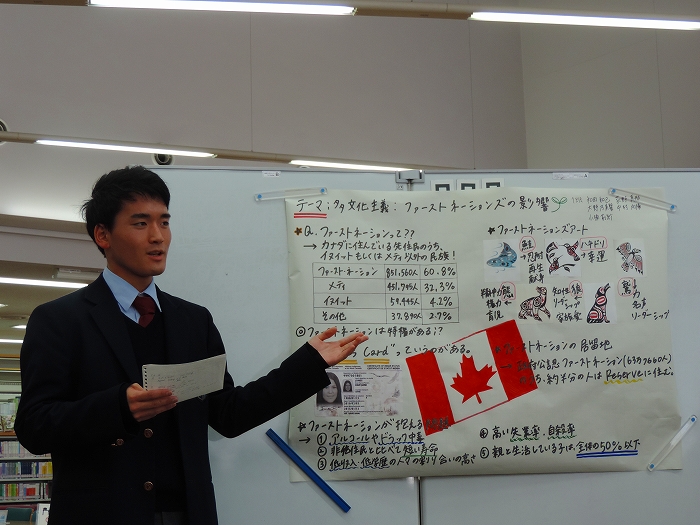 テーマ:多文化主義:ファーストネーションズの影響
★Q.ファーストネーションって??
→カナダに住んでいる先住民のうち、
イヌイットもしくはメティ以外の民族!
ファーストネーション 851,560人 60.8%
メティ 451,795人 32.3%
イヌイット 59,445人 4.2%
その他 37,890人 2.7%
◎ファーストネーションは特権がある!?
s Card"っていうのがある。
★ファーストネーションズアート
鮭
→忍耐
再生
献身
ハチドリ
→幸運
熊
育児
知性
リーダーシップ
家族愛
鷲
力
名声
リーダーシップ
ストネーションの居留地
政府公認ファーストネーション
約半分の人はReserveに住む。
★ファーストネーションが抱える
→①アルコールやドラッグ中毒
②非先住民と比べて短い寿命
③低収入・低学歴の人々の割り合いの高さ
④高い失業率・自殺率
⑤親と生活している子は全体の50%以下